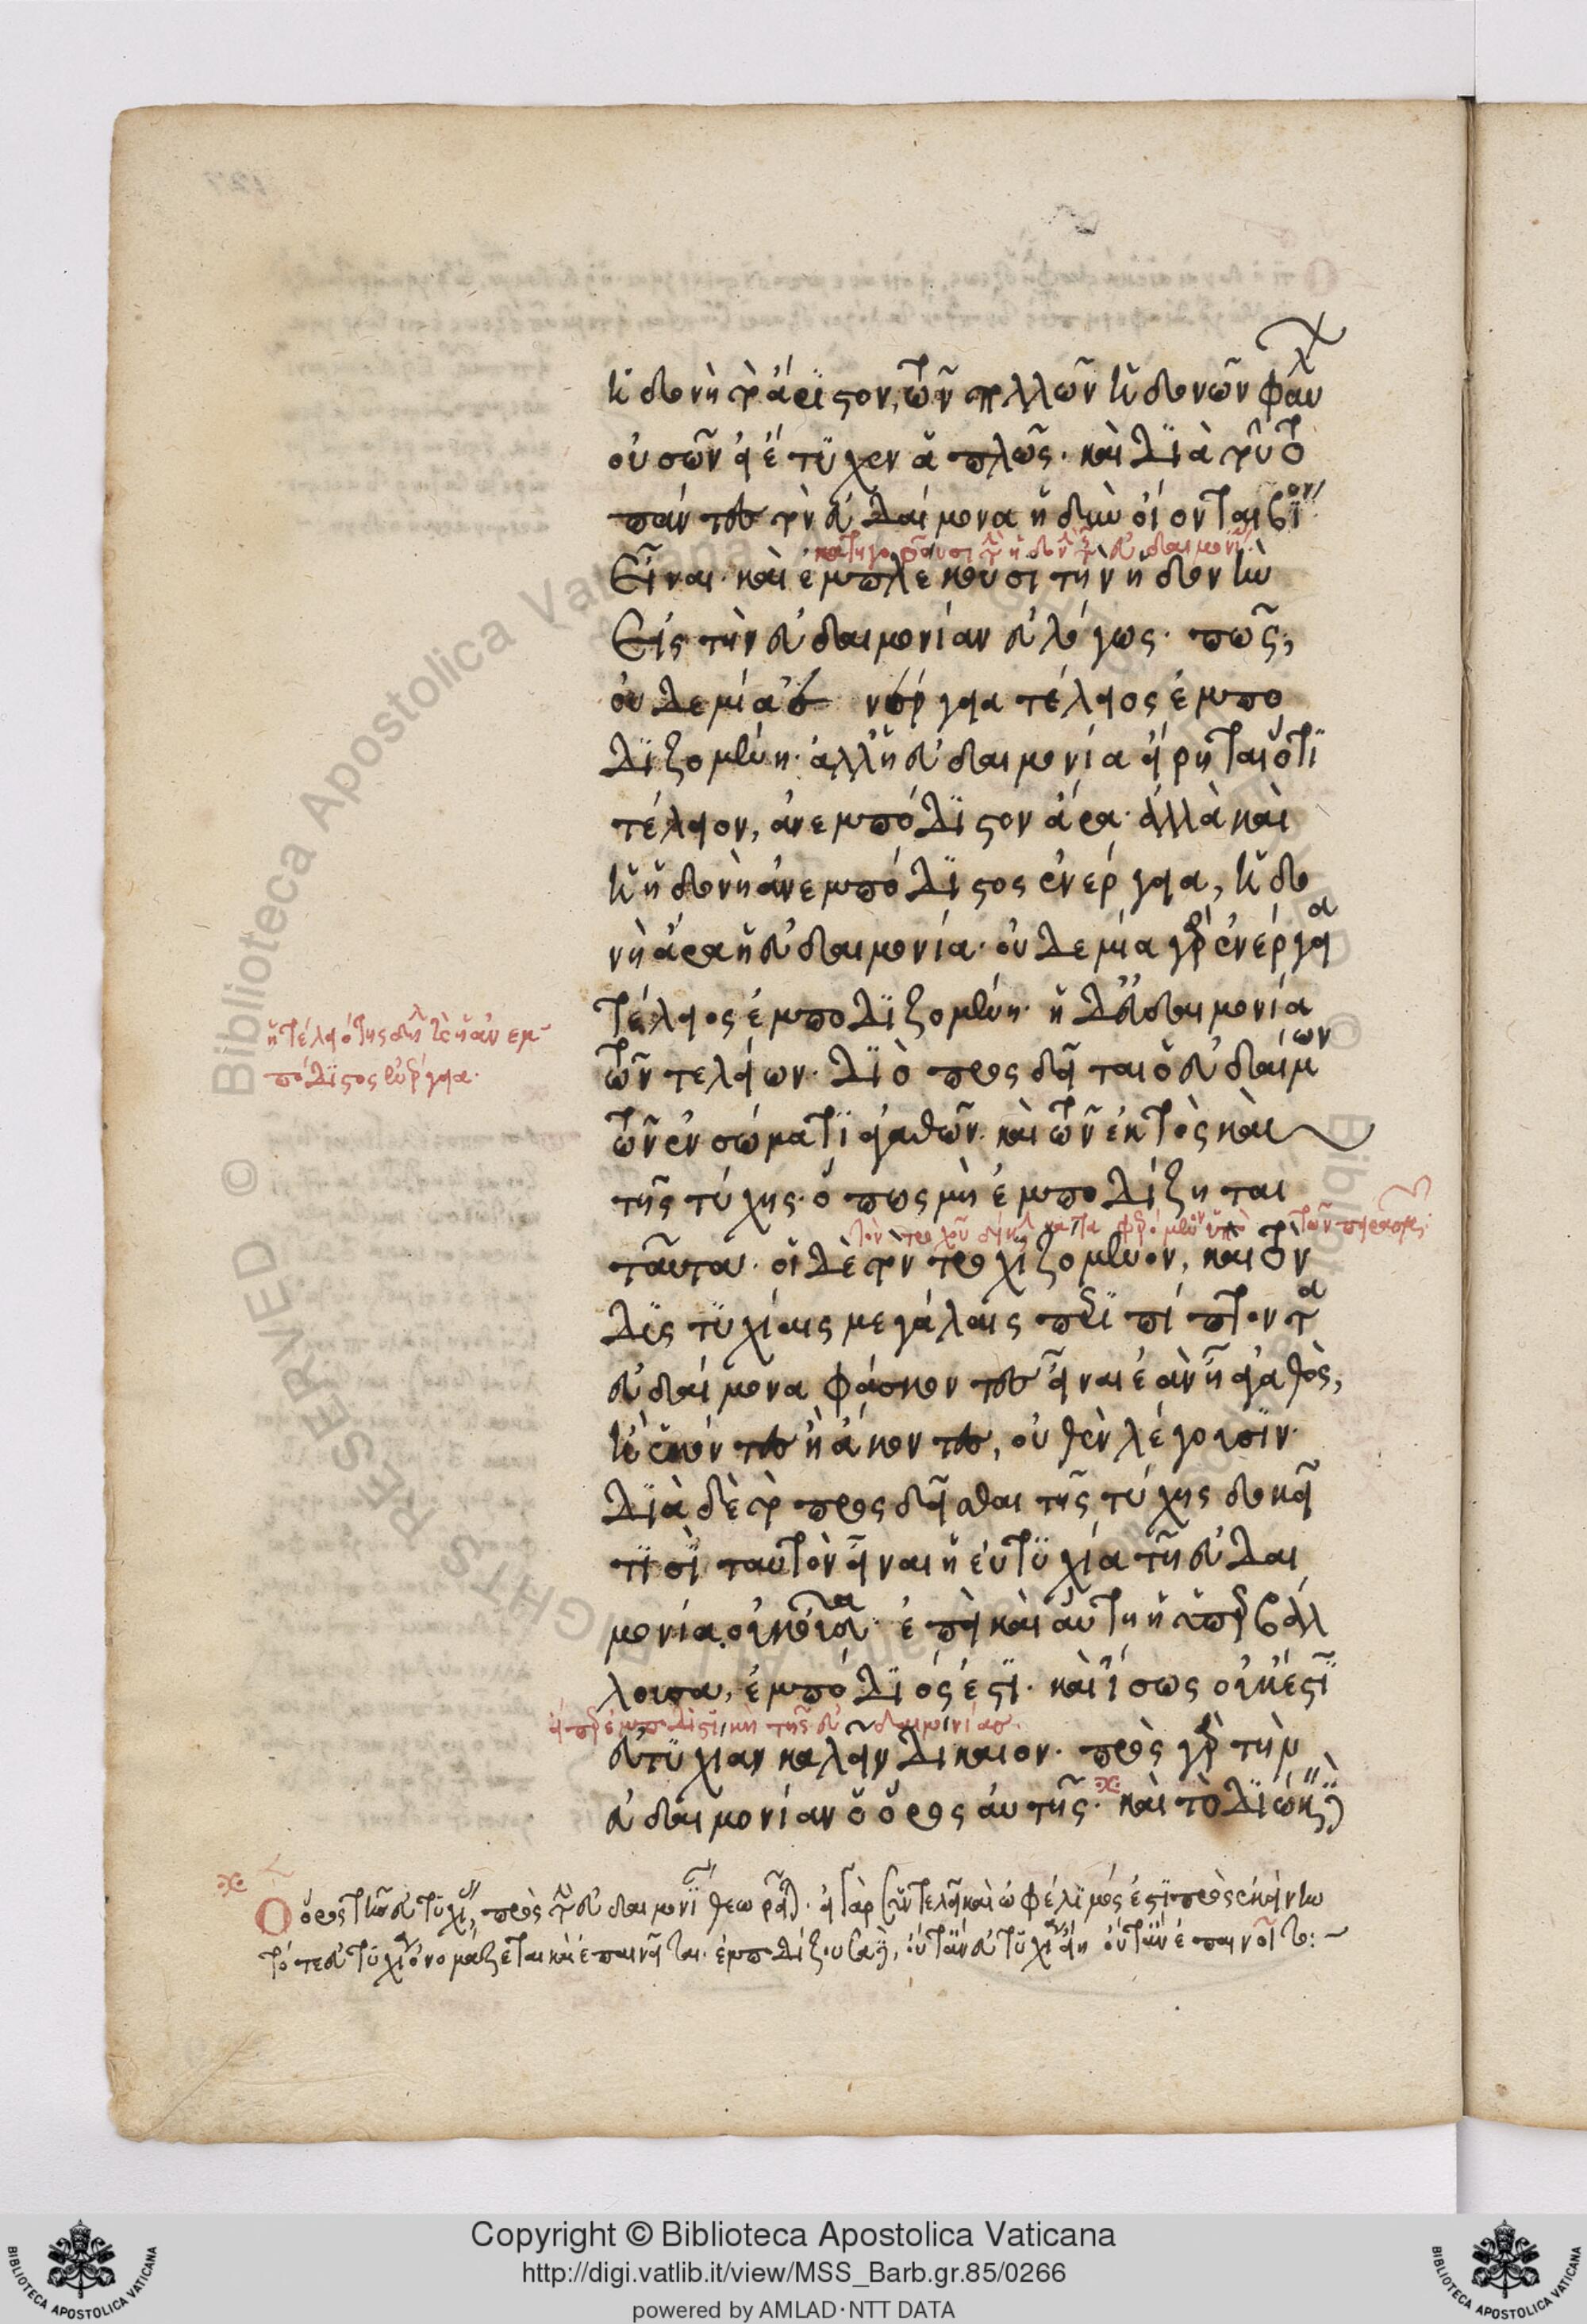 ἡδονὴ τὸ ἄριστον, τῶν πολλῶν ἡδονῶν φαύλ
οὐσῶν εἰ ἔτυχεν ἁπλῶς. καὶ διὰ τοῦτο
πάντες τὸν εὐδαίμονα ἡδὺν οἴονται βίον
κατηγοροῦσι τὴν ἡδονὴν τῆς εὐδαιμονίας
εἶναι. καὶ ἐμπλέκουσι τὴν ἡδονὴν
εἰς τὴν εὐδαιμονίαν εὐλόγως. πῶς;
οὐδεμία ἐνέργεια τέλειος ἐμπο
διζομένη. ἀλλ' ἡ εὐδαιμονία εἴρηται ὅτι
τέλειον, ἀνεμπόδιστον ἄρα. ἀλλὰ καὶ
ἡ ἡδονὴ ἀνεμπόδιστος ἐνέργεια, ἡδο
νὴ ἄρα ἡ εὐδαιμονία. οὐδεμία γὰρ ἐνέργεια
τέλειος ἐμποδιζομένη. ἡ δ' εὐδαιμονία
ἡ τελειότης δηλοῖ ἡ ἀνεμ-
πόδιστος ἐνέργεια.
τῶν τελείων. διὸ προσδεῖται ὁ εὐδαίμων
τῶν ἐν σώματι ἀγαθῶν. καὶ τῶν ἐκτὸς καὶ
τῆς τύχης. ὅπως μὴ ἐμποδίζηται
ταῦτα. οἱ δὲ τὸν τροχιζόμενον, καὶ τὸν
δυστυχίαις μεγάλαις περιπίπτοντα
εὐδαίμονα φάσκοντες εἶναι ἐὰν ᾖ ἀγαθὸς,
ἢ ἑκόντες ἢ ἄκοντες, οὐθὲν λέγουσιν.
διὰ δὲ τὸ προσδεῖσθαι τῆς τύχης δοκεῖ
τισὶ ταυτὸν εἶναι ἡ εὐτυχία τῇ εὐδαι
μονίᾳ. οὐκ οὖσα. ἐπεὶ καὶ αὐτὴ ἡ ὑπερβάλ
λουσα, ἐμπόδιός ἐστι. καὶ ἴσως οὐκέτι
εὐτυχίαν καλεῖν δίκαιον. πρὸς γὰρ τὴν
εὐδαιμονίαν ὁ ὅρος αὐτῆς. καὶ τὸ διώκειν
Ὁ ὅρος τῆς εὐτυχίας, πρὸς τὴν εὐδαιμονίαν θεωρεῖται. εἰ γὰρ συντελεῖ καὶ ὠφέλιμός ἐστι πρὸς ἐκείνην
τότε εὐτυχία ὀνομάζεται καὶ ἐπαινεῖται. ἐμποδίζουσα δὲ, οὔτ' ἂν εὐτυχία εἴη οὔτ' ἂν ἐπαινοῖτο:~
Copyright © Biblioteca Apostolica Vaticana
http://digi.vatlib.it/view/MSS_Barb.gr.85/0266
powered by AMLAD·NTT DATA